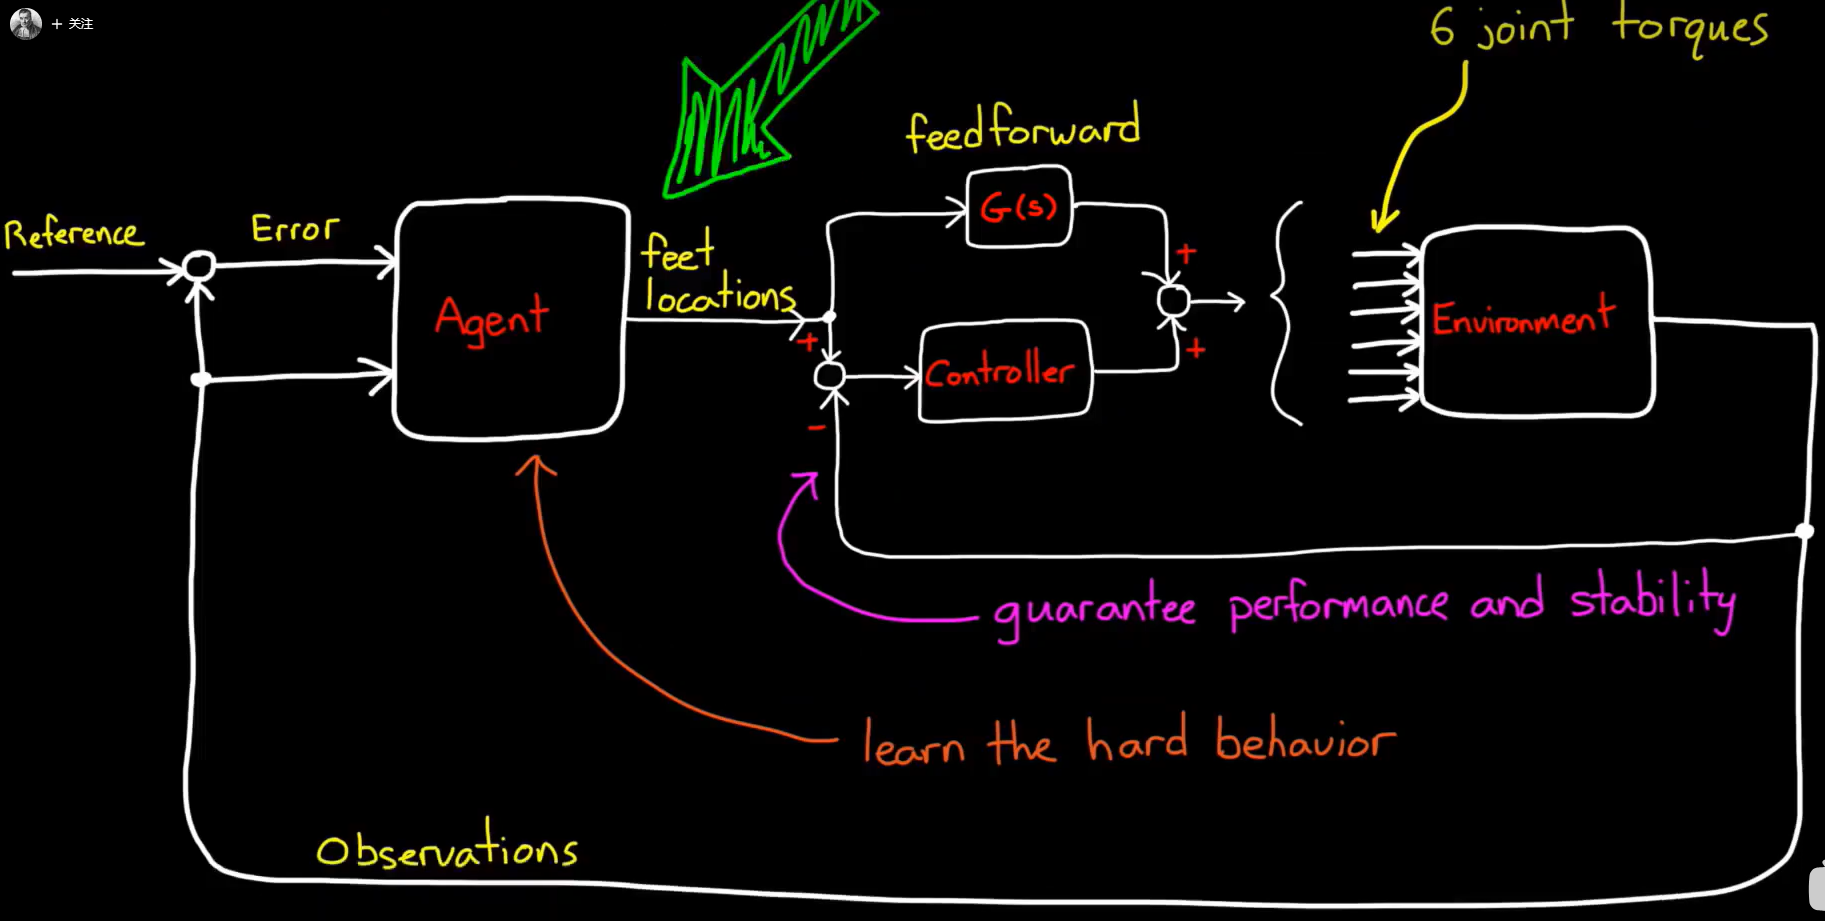 + 关注
6 joint torques
feedforward
G(s)
Reference
Error
feet
locations
+
Agent
+
Environment
+
Controller
-
guarantee performance and stability
learn the hard behavior
Observations